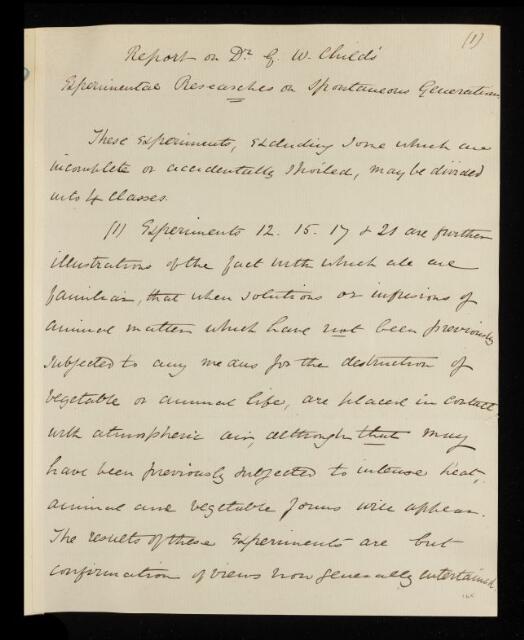 (1)
Report on Dr. G. W. Child's
Experimental Researches on Spontaneous Generation
These experiments, excluding some which are
incomplete or accidentally spoiled, may be divided
into 4 classes.
(1) Experiments 12. 15. 17 & 21 are further
illustrations of the fact with which all are
familiar, that when solutions or infusions of
animal matter which have not been previously
subjected to any means for the destruction of
vegetable or animal life, are placed in contact
with atmospheric air, although that may
have been previously subjected to intense heat,
animal and vegetable forms will appear.
The results of these experiments are but
confirmation of views now generally entertained.